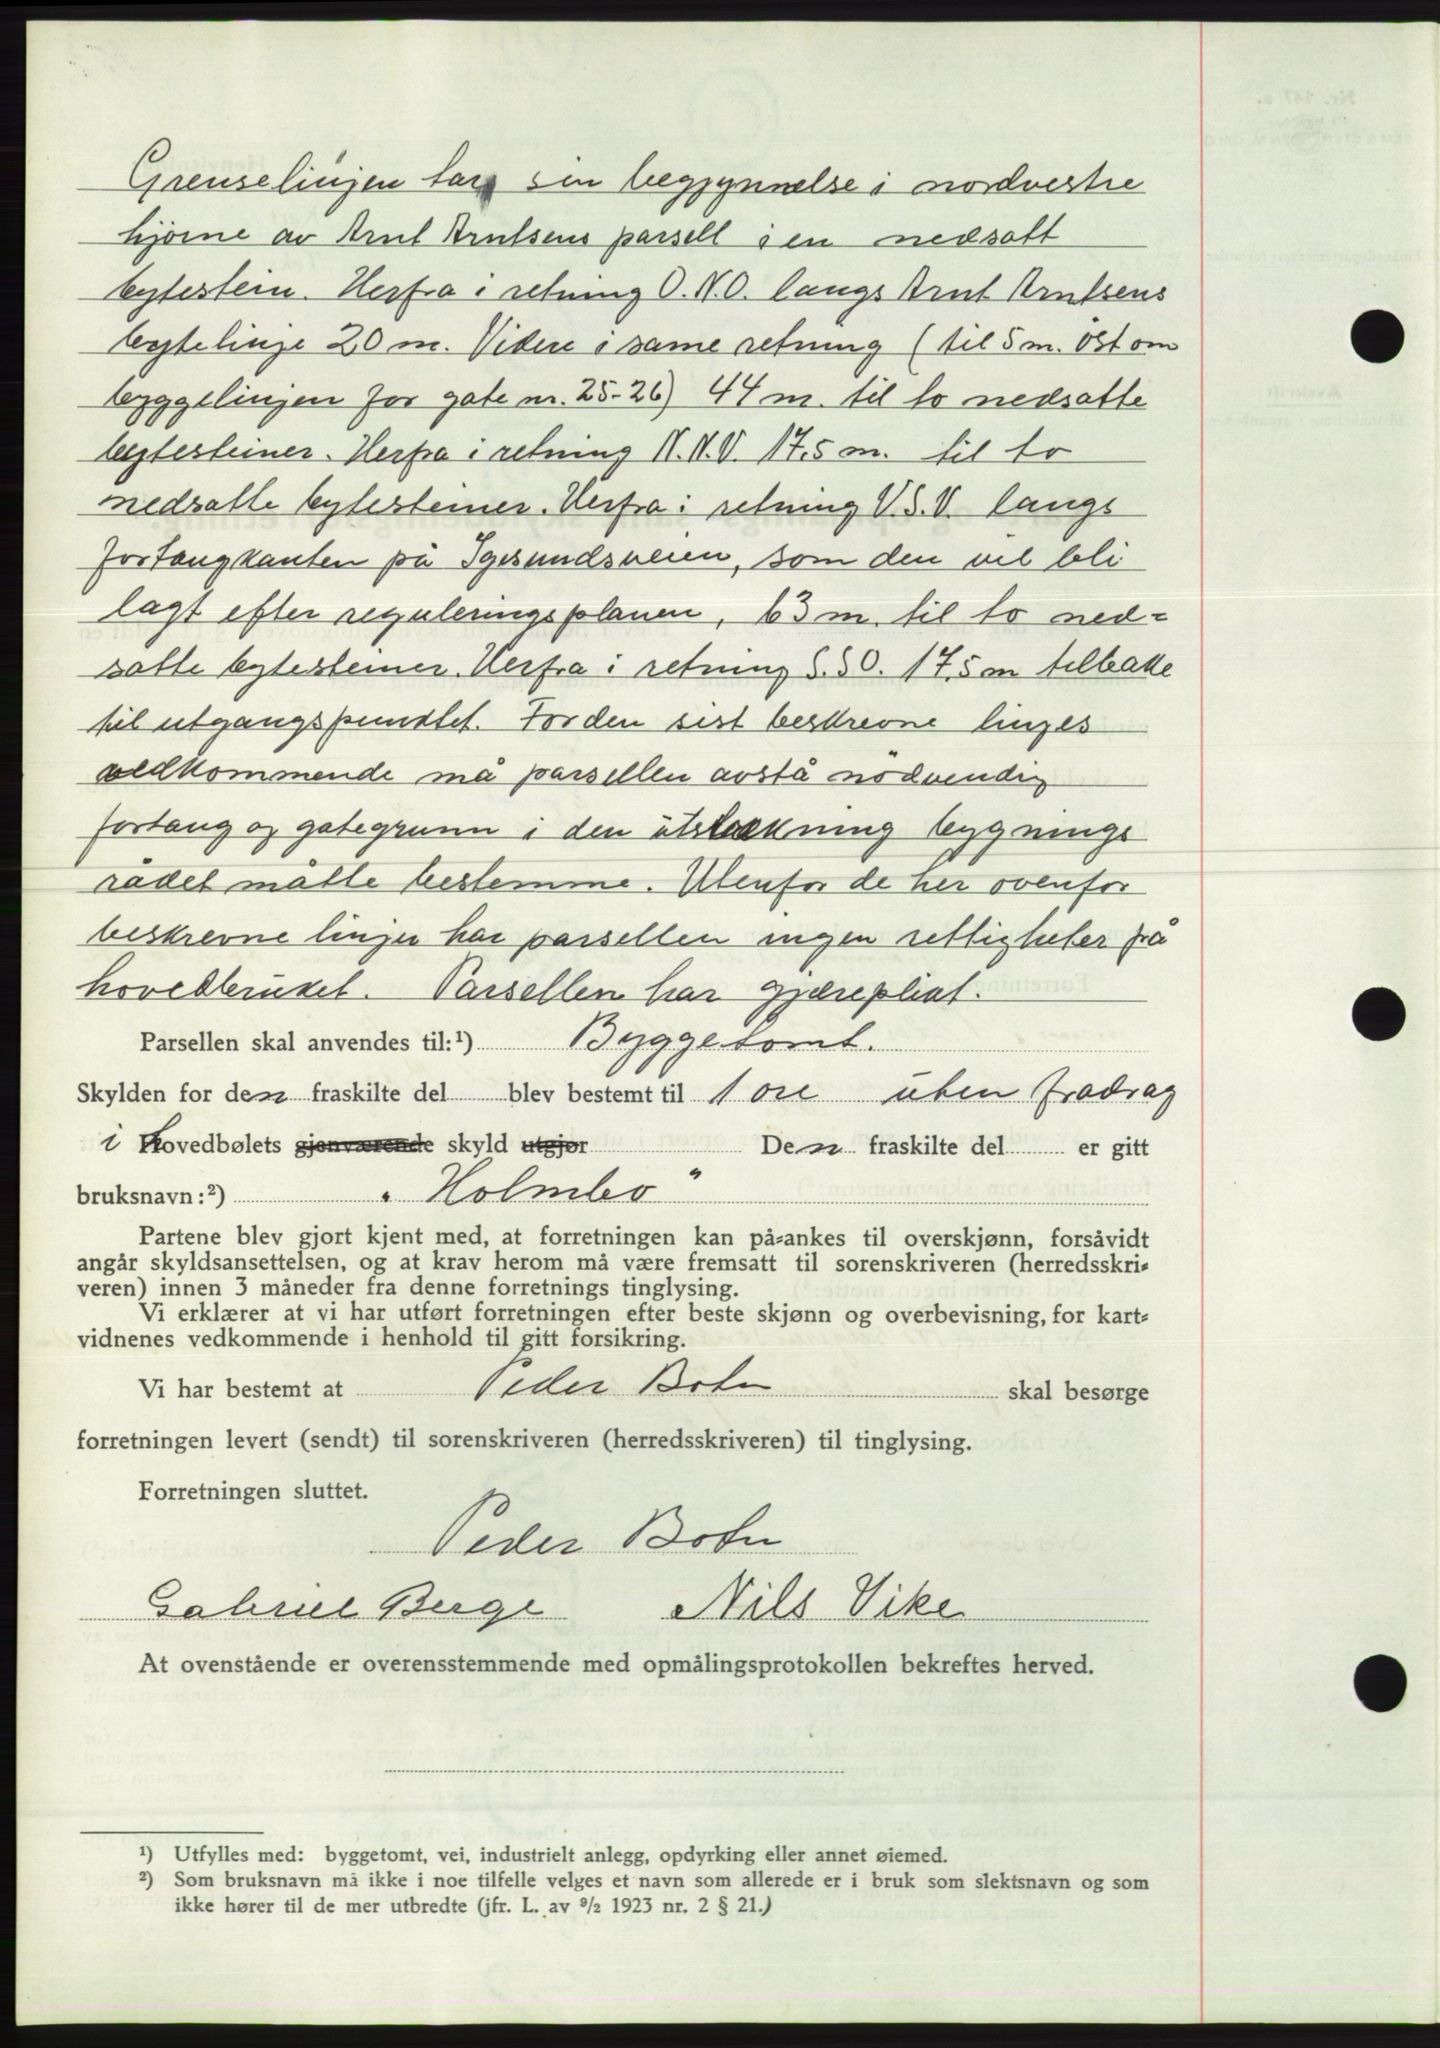 Grenselinjen tar sin begyynnelse i nordvestre
hjörne av Arnt Arntsens parsell i en nedsatt
bytestein. Herfra i retning O.N.O. langs Arnt Arntsens
bytelinje 20 m. Videre i same retning (til 5 m. öst om
byggelinjen for gate nr. 25-26) 44 m. til to nedsatte
bytesteiner. Herfra i retning N.N.V. 17,5 m. til to
nedsatte bytesteiner. Herfra i retning V.S.V. langs
fortaugkanten på Igesundsveien, som den vil bli
lagt efter reguleringsplanen, 63 m. til to ned-
satte bytesteiner. Herfra i retning S.SO. 17,5 m tilbake
til utgangspunktet. For den sist beskrevne linjes
vedkommende må parsellen avstå nödvendig
fortaug og gategrunn i den utstrekning bygnings
rådet måtte bestemme. Utenfor de her ovenfor
beskrevne linjer har parsellen ingen rettigheter på
hovedbruket. Parsellen har gjæreplikt.
Parsellen skal anvendes til:¹) Byggetomt.
Skylden for den fraskilte del blev bestemt til 1 öre uten fradrag
i hovedbølets gjenværende skyld utgjør Den fraskilte del er gitt
bruksnavn:²) „Holmbo"
Partene blev gjort kjent med, at forretningen kan på-ankes til overskjønn, forsåvidt
angår skyldsansettelsen, og at krav herom må være fremsatt til sorenskriveren (herredsskri-
veren) innen 3 måneder fra denne forretnings tinglysing.
Vi erklærer at vi har utført forretningen efter beste skjønn og overbevisning, for kart-
vidnenes vedkommende i henhold til gitt forsikring.
Vi har bestemt at Peder Botn skal besørge
forretningen levert (sendt) til sorenskriveren (herredsskriveren) til tinglysing.
Forretningen sluttet.
Peder Botn
Gabriel Berge Nils Vike
At ovenstående er overensstemmende med opmålingsprotokollen bekreftes herved.
¹) Utfylles med: byggetomt, vei, industrielt anlegg, opdyrking eller annet øiemed.
²) Som bruksnavn må ikke i noe tilfelle velges et navn som allerede er i bruk som slektsnavn og som
ikke hører til de mer utbredte (jfr. L. av 9/2 1923 nr. 2 § 21.)